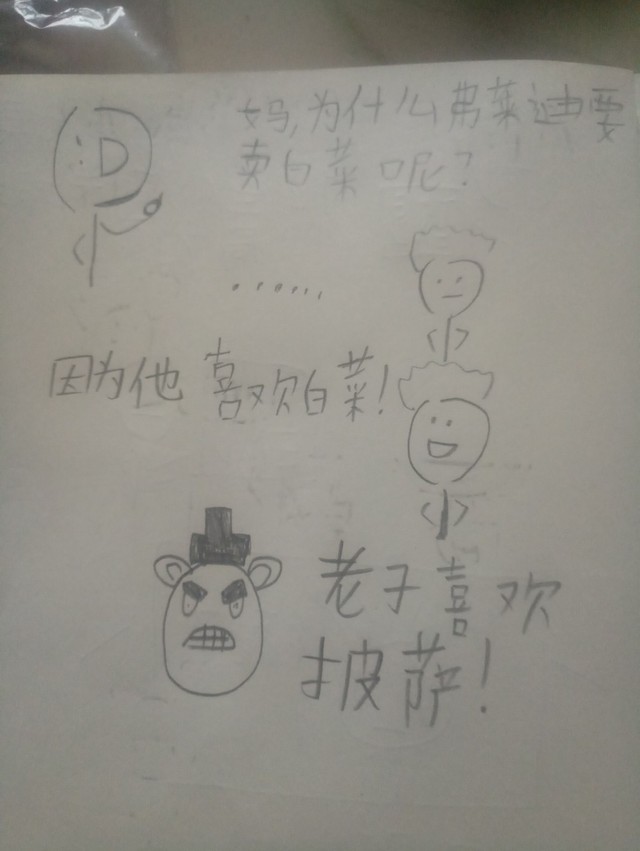 妈,为什么弗莱迪要
卖白菜呢？
......
因为他喜欢白菜！
老子喜欢
披萨！